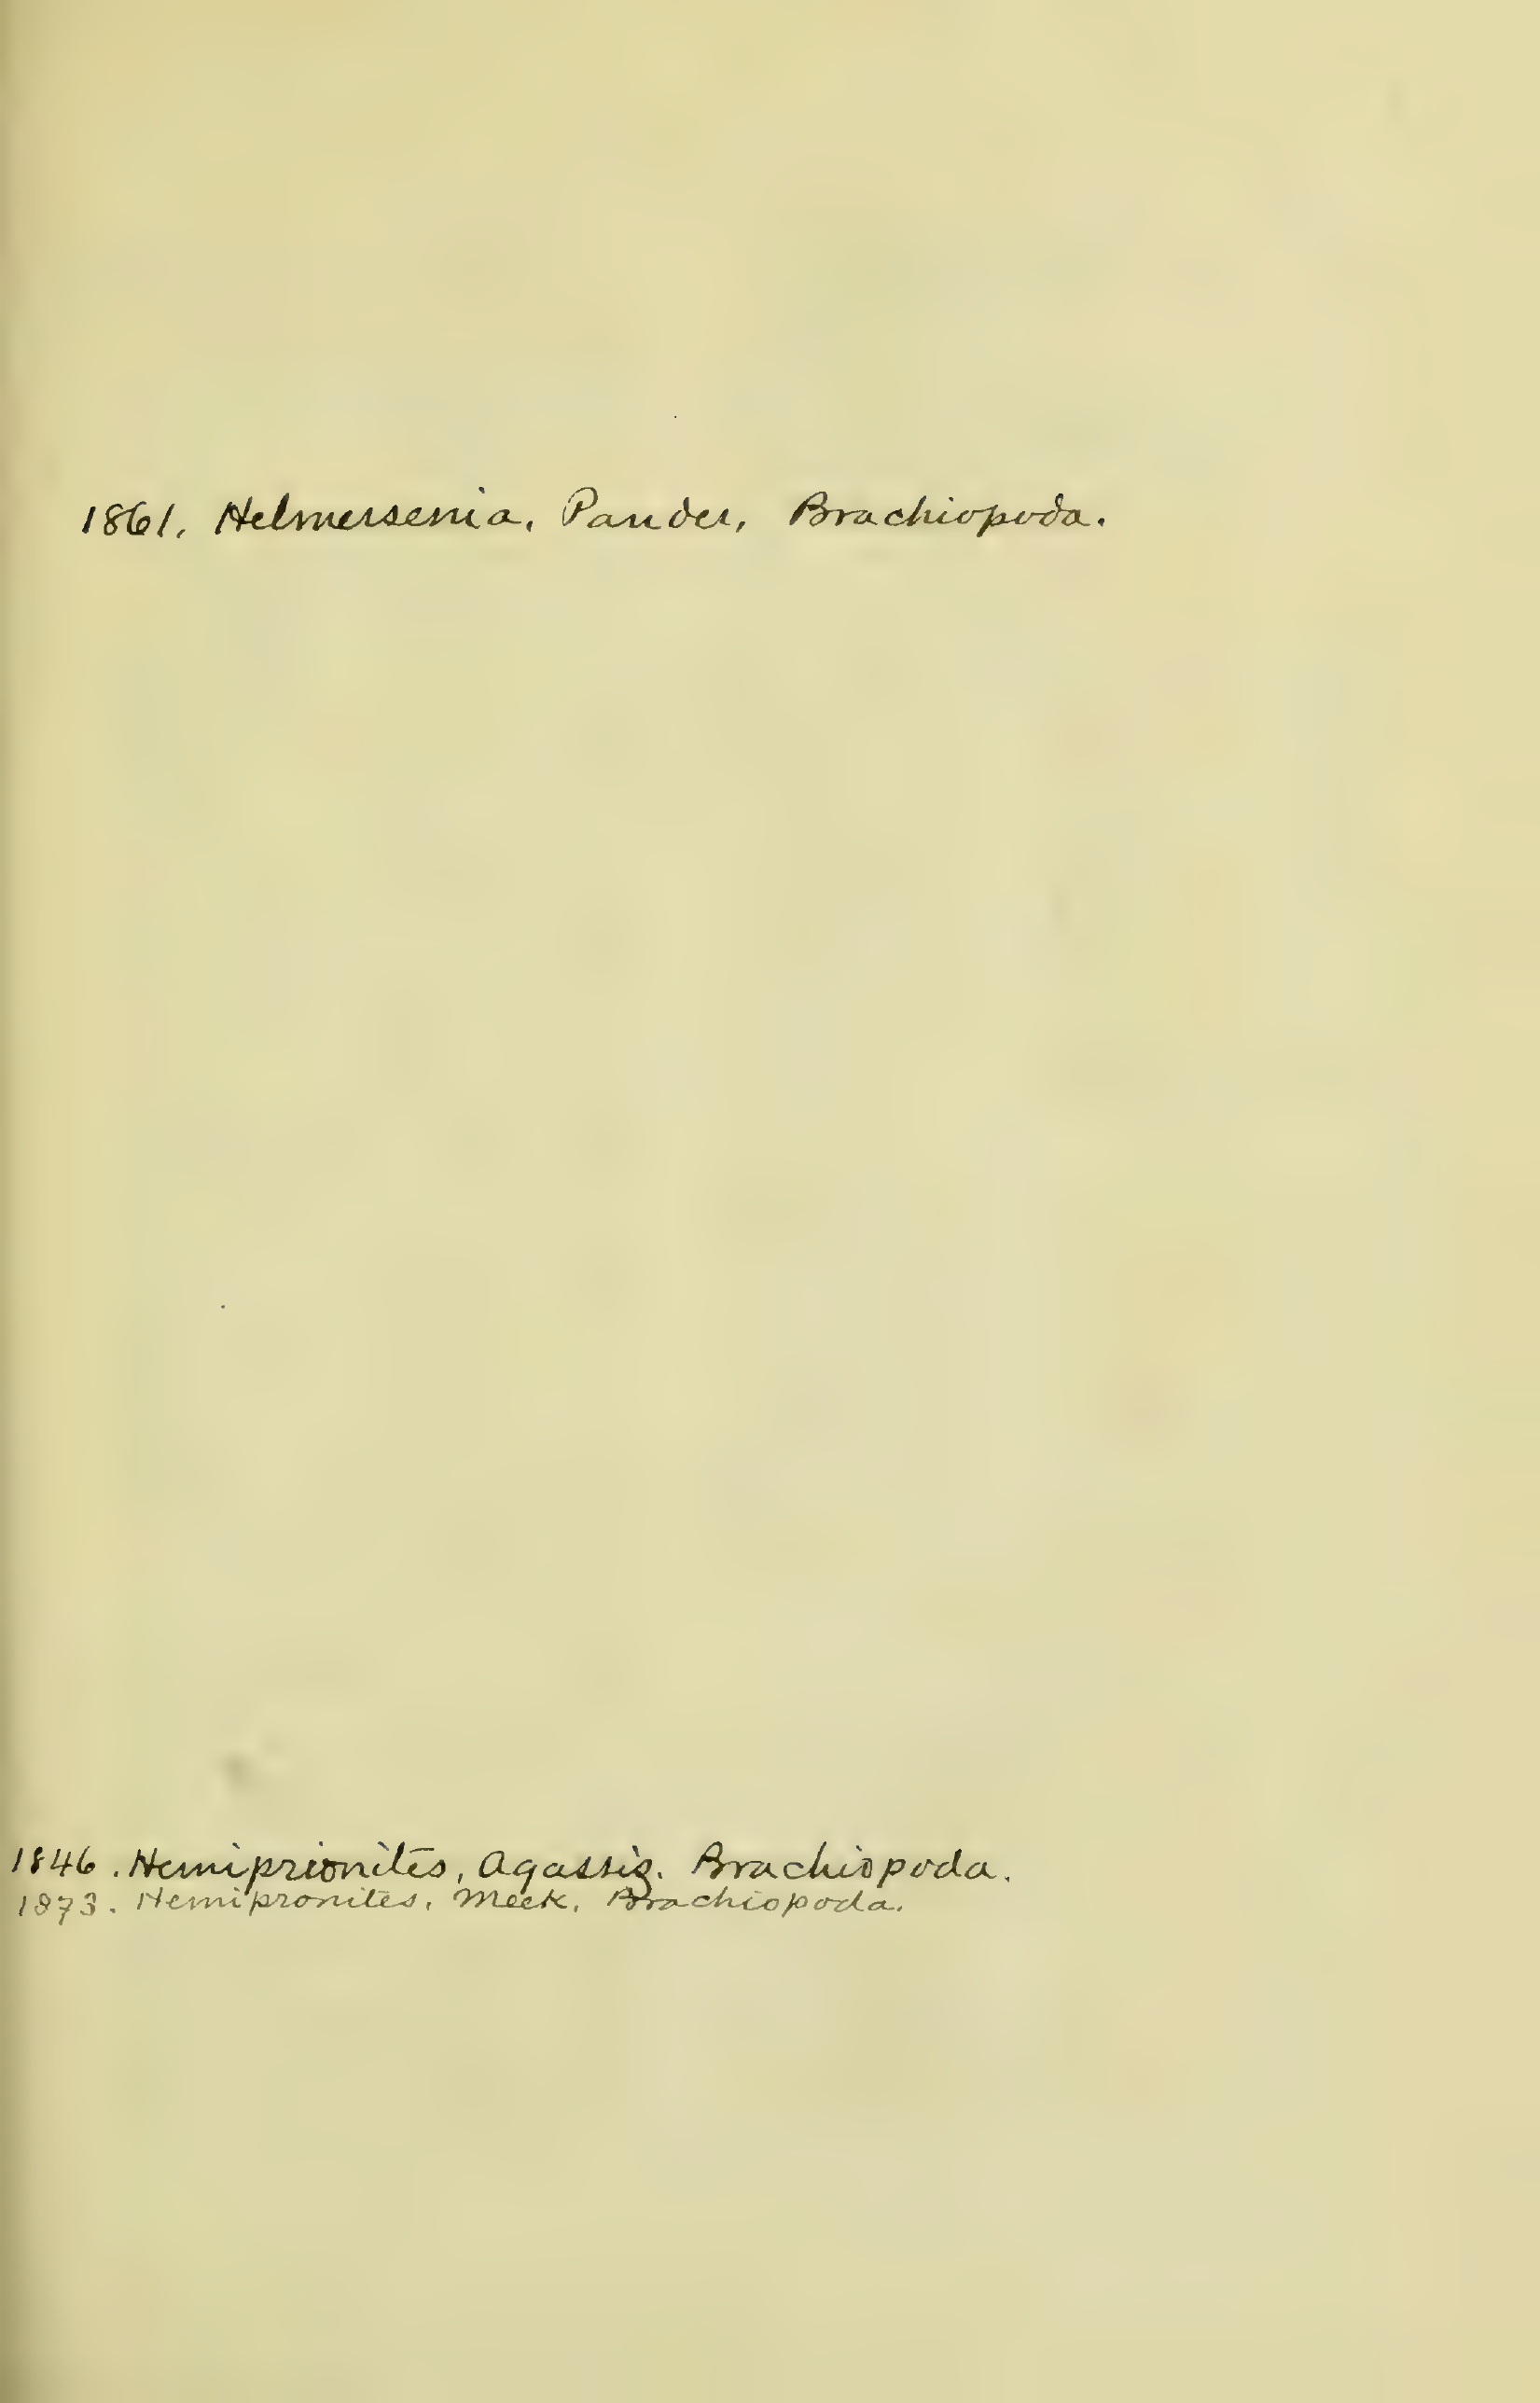 1861. Helmersenia, Pander, Brachiopoda.
1846. Hemiprionites, Agassiz. Brachiopoda.
1873. Hemipronites, Meek. Brachiopoda.